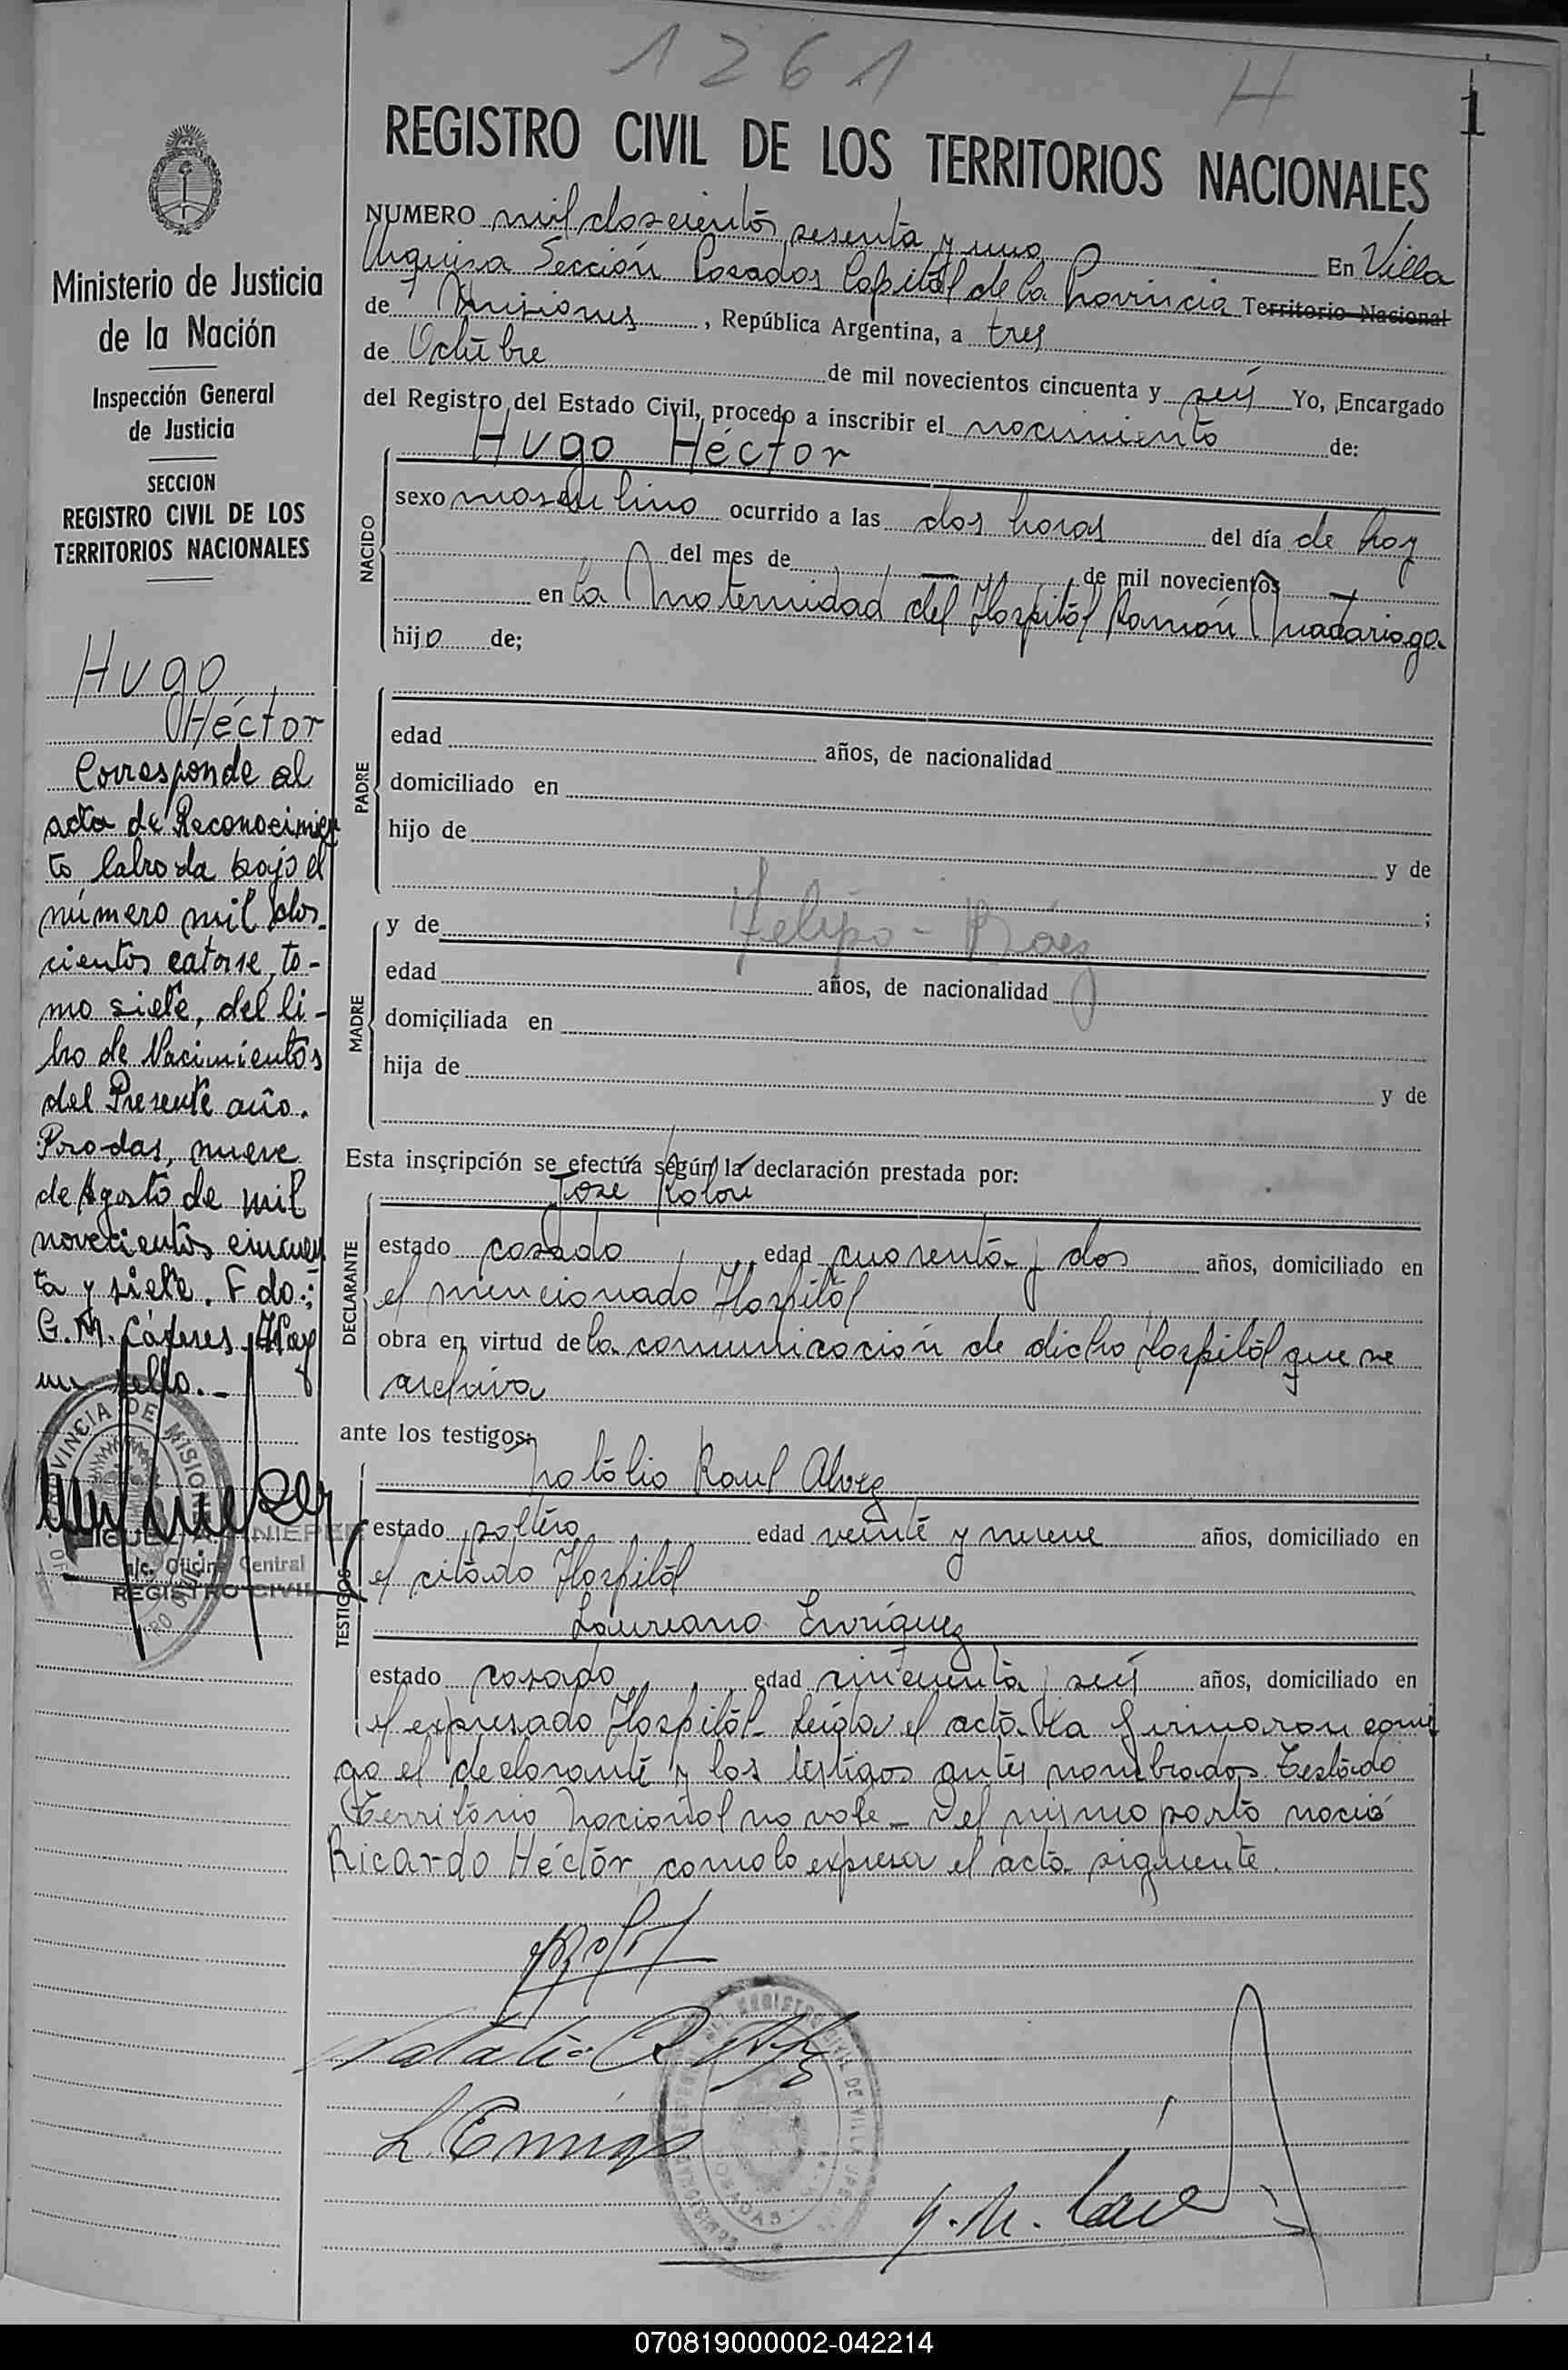 1261 H
1
REGISTRO CIVIL DE LOS TERRITORIOS NACIONALES
NUMERO mil doscientos sesenta y uno En Villa
Urquiza Sección Posadas Capital de la Provincia Territorio Nacional
de Misiones, República Argentina, a tres
de Octubre de mil novecientos cincuenta y seis Yo, Encargado
del Registro del Estado Civil, procedo a inscribir el nacimiento de:
NACIDO
Hugo Héctor
sexo masculino ocurrido a las dos horas del día de hoy
del mes de de mil novecientos
en la Maternidad del Hospital Ramón Madariaga
hijo de;
PADRE
edad años, de nacionalidad
domiciliado en
hijo de y de
;
MADRE
y de Felipa - Báez
edad años, de nacionalidad
domiciliada en
hija de y de
Esta inscripción se efectúa según la declaración prestada por:
DECLARANTE
José
estado casado edad cuarenta y dos años, domiciliado en
el mencionado Hospital
obra en virtud de la comunicación de dicho Hospital que se
archiva
ante los testigos:
TESTIGOS
Natalio Raul Alvez
estado soltero edad veinte y nueve años, domiciliado en
el citado Hospital
Laureano Enriquez
estado casado edad cincuenta y seis años, domiciliado en
el expresado Hospital- Leída el acta la firmaron conmi
go el declarante y los testigos antes nombrados. Testado
Territorio Nacional no vale - Del mismo parto nació
Ricardo Héctor, como lo expresa el acta siguiente.
Natalio R
L. Enriq
G. M.
Ministerio de Justicia
de la Nación
Inspección General
de Justicia
SECCION
REGISTRO CIVIL DE LOS
TERRITORIOS NACIONALES
Hugo
Héctor
Corresponde al
acta de Reconocimien
to labrada bajo el
número mil dos-
cientos catorse, to-
mo siete, del li-
bro de Nacimientos
del Presente año.
Posadas, nueve
de Agosto de mil
novecientos cincuen
ta y siete. Fdo.:
G. M. Cáceres. Hay
un sello.-
PROVINCIA DE MISIONES
MIGUEL A.
a/c. Oficina Central
REGISTRO CIVIL
070819000002-042214